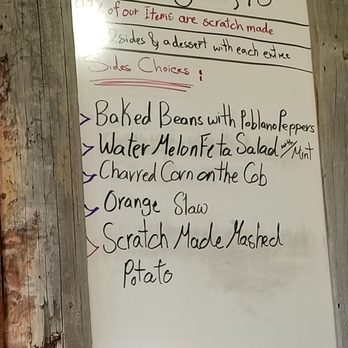 of our Items are scratch made
2 sides & a dessert with each entree
Sides Choices :
Baked Beans with Poblano Peppers
Water Melon Feta Salad with Mint
Charred Corn on the Cob
Orange Slaw
Scratch Made Mashed
Potato